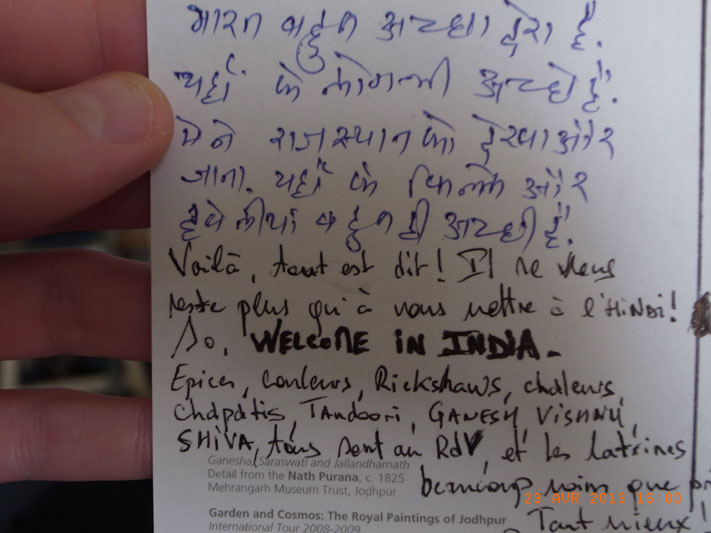 भारत बहुत अच्छा देश है.
यहाँ के लोग भी अच्छे हैं.
मैने राजस्थान को देखा और
जाना. यहाँ के किल्ले और
हवेलीयाँ बहुत ही अच्छी हैं.
Voilà, tout est dit! Il ne vous
reste plus qu'à vous mettre à l'HiNDi!
So, WELCOME iN INDIA.
Epices, couleurs, Rickshaws, chaleurs,
Chapatis, TANDOORI, GANESH, VISHNU,
SHIVA, tous sont au RdV, et les latrines
Ganesha, Saraswati and Jallandharnath
Detail from the Nath Purana, c. 1825
beaucoup moins que
Mehrangarh Museum Trust, Jodhpur
23 AVR 2013
Garden and Cosmos: The Royal Paintings of Jodhpur
Tant mieux!
International Tour 2008-2009